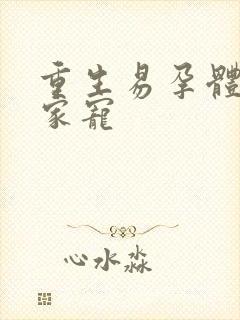 重生易孕體
家寵
心水淼